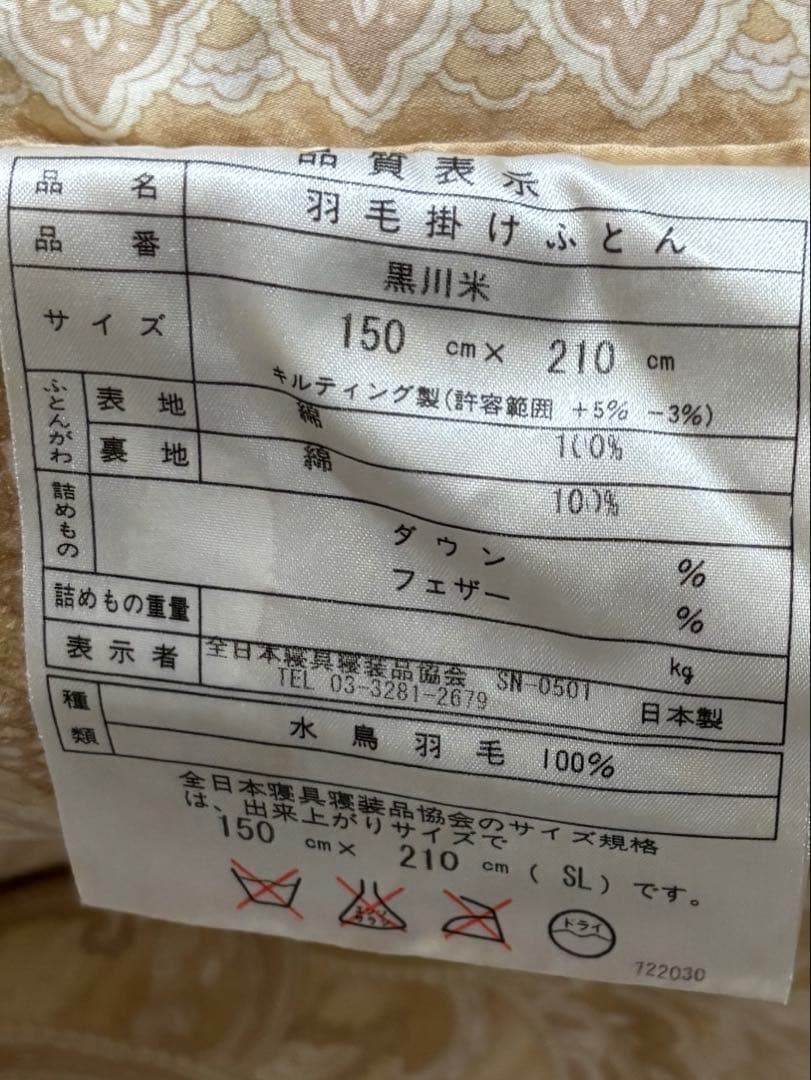 品質表示
品名 羽毛掛けふとん
品番 黒川米
サイズ 150 cm× 210 cm
キルティング製(許容範囲 +5% -3%)
ふとんがわ 表地 綿 100%
裏地 綿 100%
詰めもの ダウン %
フェザー %
詰めもの重量 kg
表示者 全日本寝具寝装品協会 SN-0501
TEL 03-3281-2679 日本製
種類 水鳥羽毛 100%
全日本寝具寝装品協会のサイズ規格
は、出来上がりサイズで
150 cm× 210 cm ( SL) です。
ドライ
722030